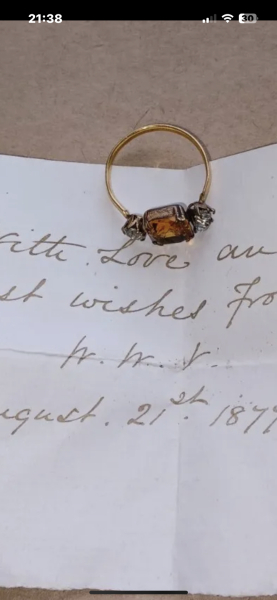 21:38
30
with Love an
st wishes fro
W. W. V.
ugust. 21st. 1879